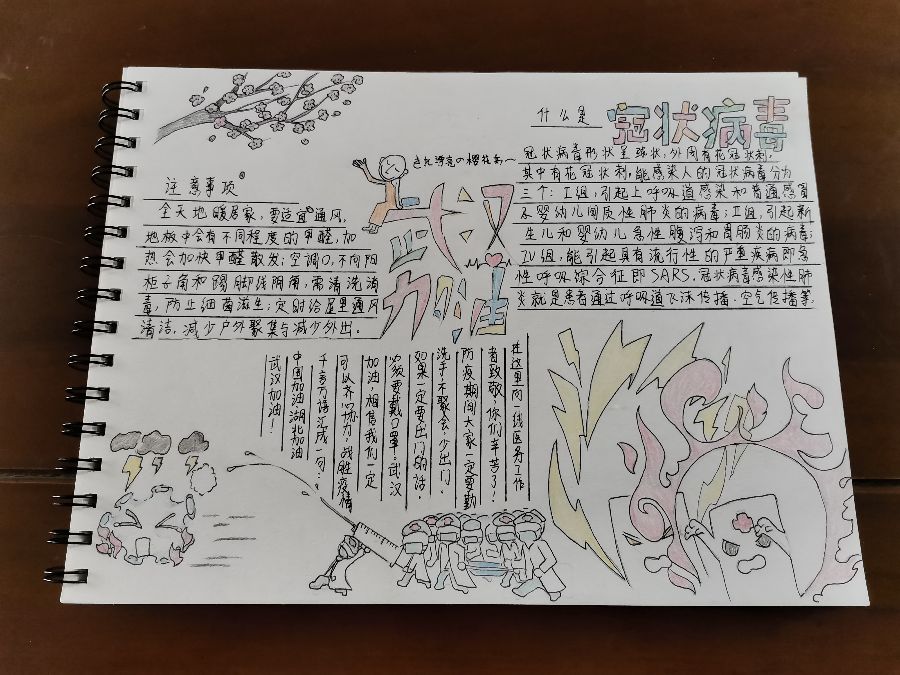 什么是 冠状病毒
冠状病毒形状呈球状,外周有花冠状刺,
其中有花冠状刺,能感染人的冠状病毒分为
三个:I组,引起上呼吸道感染和普通感冒
及婴幼儿间质性肺炎的病毒;II组,引起新
生儿和婴幼儿急性腹泻和胃肠炎的病毒;
IV组,能引起具有流行性的严重疾病即急
性呼吸综合征即SARS.冠状病毒感染性肺
炎就是患者通过呼吸道飞沫传播.空气传播等.
武汉
加油
注意事项
全天地暖居家,要适宜通风,
地板中会有不同程度的甲醛,加
热会加快甲醛散发;空调口,不同阳
柜子角和踢脚线阴角,需清洗消
毒,防止细菌滋生;定时给屋里通风
清洁.减少户外聚集与减少外出.
在这里向一线医务工作
者致敬,你们辛苦了!
防疫期间大家一定要勤
洗手不聚会,少出门.
如果一定要出门的话
必须要戴口罩,武汉
加油,相信我们一定
可以齐心协力,战胜疫情
千言万语汇成一句:
中国加油湖北加油
武汉加油!